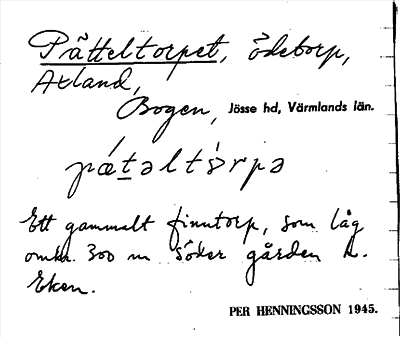 Pätteltorpet, ödetorp,
Axland,
Bogen, Jösse hd, Värmlands län.
pǽt̲əltɔ́rpə
Ett gammalt finntorp, som låg
omkr. 300 m söder gården h.
Eken.
PER HENNINGSSON 1945.